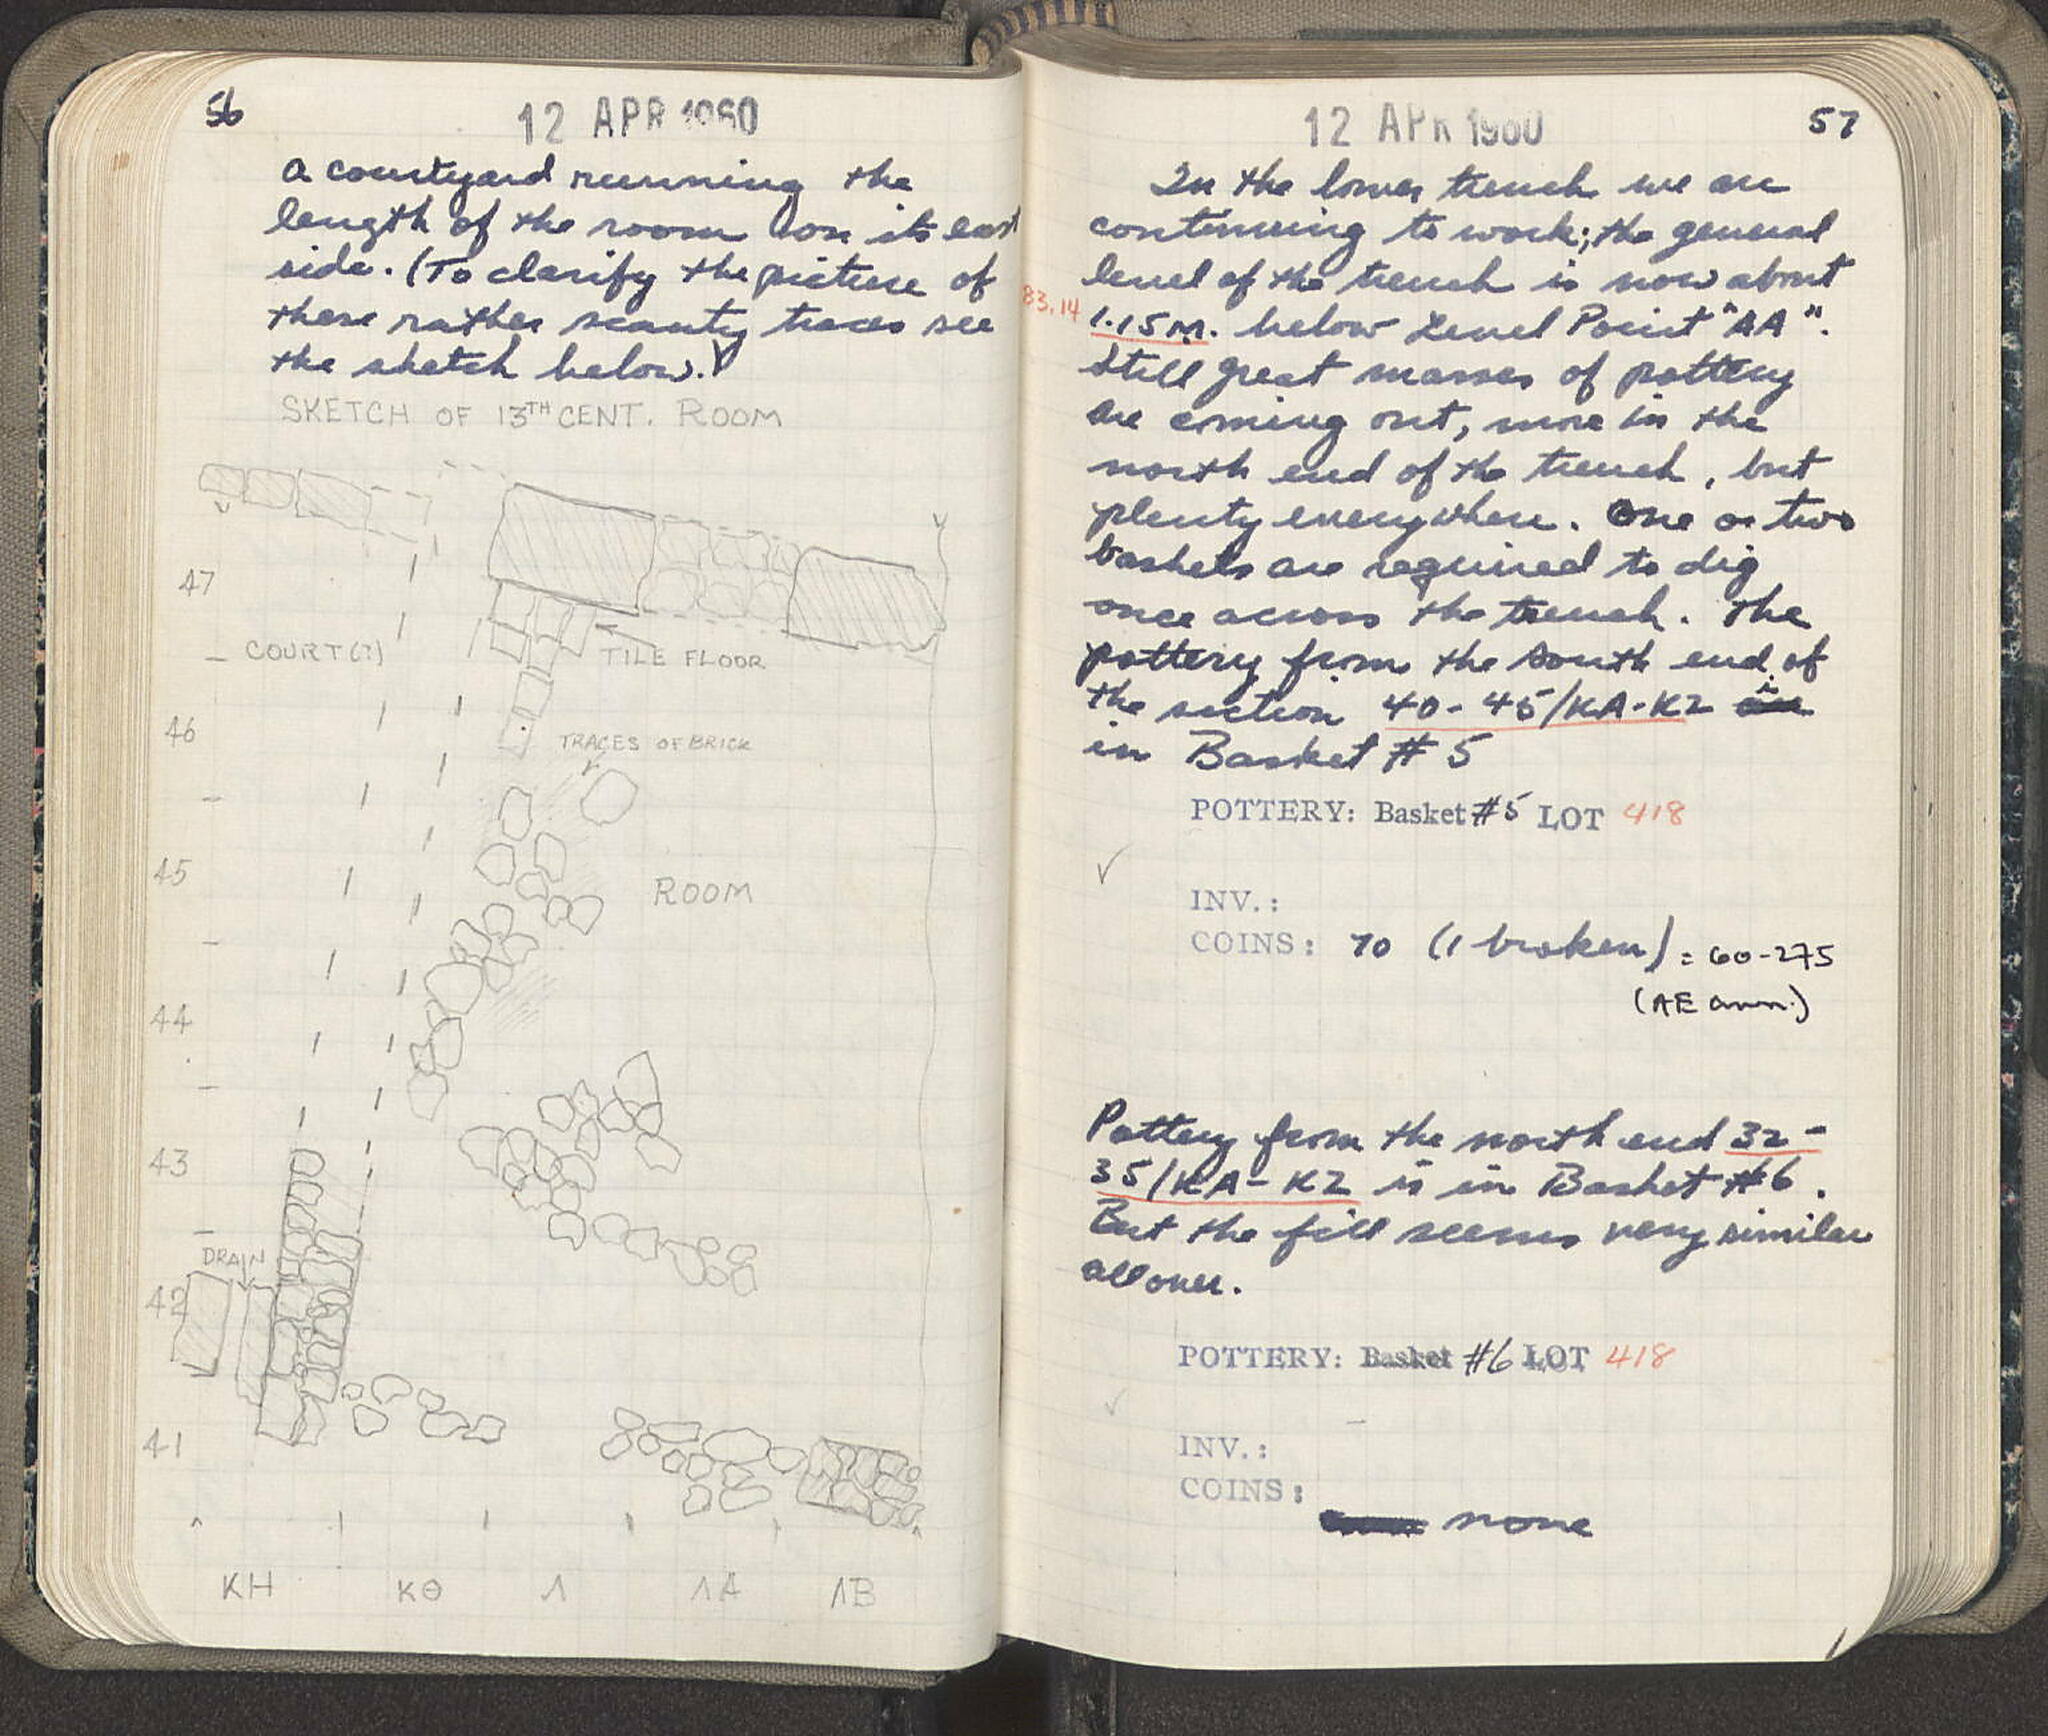 56
12 APR 1960
a courtyard running the
length of the room on its east
side. (To clarify the picture of
these rather scanty traces see
the sketch below.)
SKETCH OF 13TH CENT. ROOM
47
COURT(?)
TILE FLOOR
46
TRACES OF BRICK
45
ROOM
44
43
DRAIN
42
41
ΚΗ ΚΘ Λ ΛΑ ΛΒ
12 APR 1960
57
In the lower trench we are
continuing to work; the general
level of the trench is now about
83.14
1.15 m. below Level Point "AA".
Still great masses of pottery
are coming out, more in the
north end of the trench, but
plenty everywhere. One or two
baskets are required to dig
once across the trench. The
pottery from the south end of
the section 40-45/KA-KZ is
in Basket #5
POTTERY: Basket #5 LOT 418
INV.:
COINS: 10 (1 broken) = 60-275
(AE ann.)
Pottery from the north end 32-
35/KA-KZ is in Basket #6.
But the fill seems very similar
all over.
POTTERY: Basket #6 LOT 418
INV.:
COINS:
none